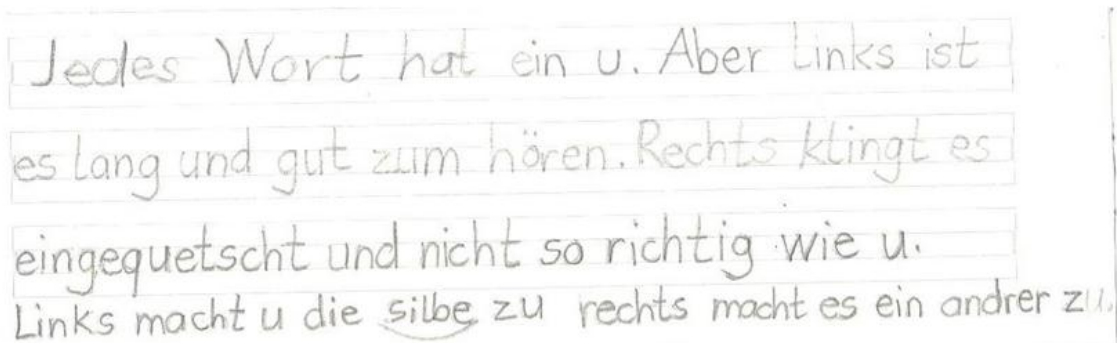 Jedes Wort hat ein u. Aber Links ist
es lang und gut zum hören. Rechts klingt es
eingequetscht und nicht so richtig wie u.
Links macht u die silbe zu rechts macht es ein andrer zu.